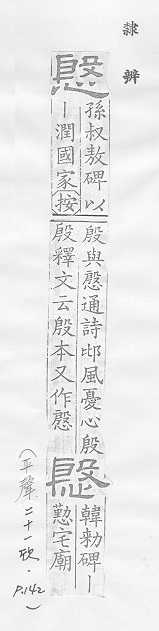 隸辨
慇
孫叔敖碑以
丨潤國家按
殷與慇通詩邶風憂心殷
殷釋文云殷本又作慇
慇
韓勑碑丨
懃宅廟
(平聲二十一欣·P.142)